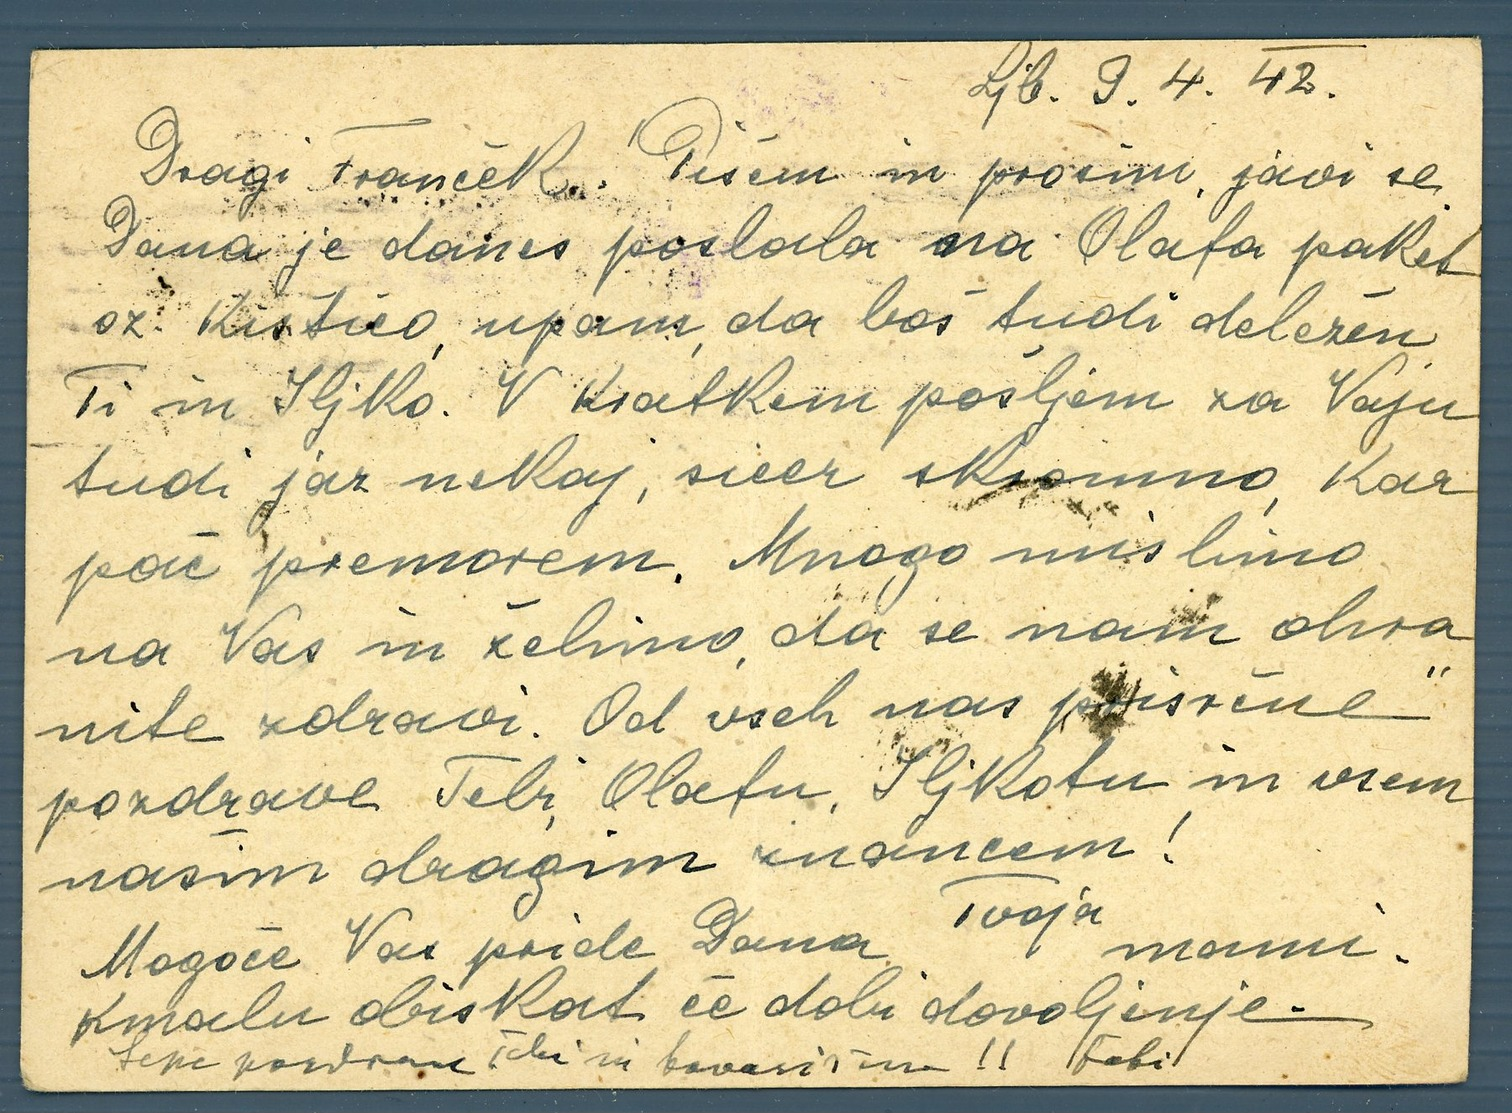 Ljb. 9. 4. 42.
Dragi Franček! Pišem in prosim, javi se.
Dana je danes poslala na Olafa paket
oz. Kištico, upam, da boš tudi deležen
Ti in Iljko. V Kratkem pošljem za Vaju
tudi jaz nekaj, sicer skromno, Kar
pač premorem. Mnogo mislimo
na Vas in želimo, da se nam ohra
nite zdravi. Od vseh nas prisrčne
pozdrave Tebi, Olafu, Iljkotu in vsem
našim dragim znancem!
Tvoja mami.
Mogoče Vas pride Dana
kmalu obiskat če dobi dovoljenje.
Lepe pozdrave Tebi in !!